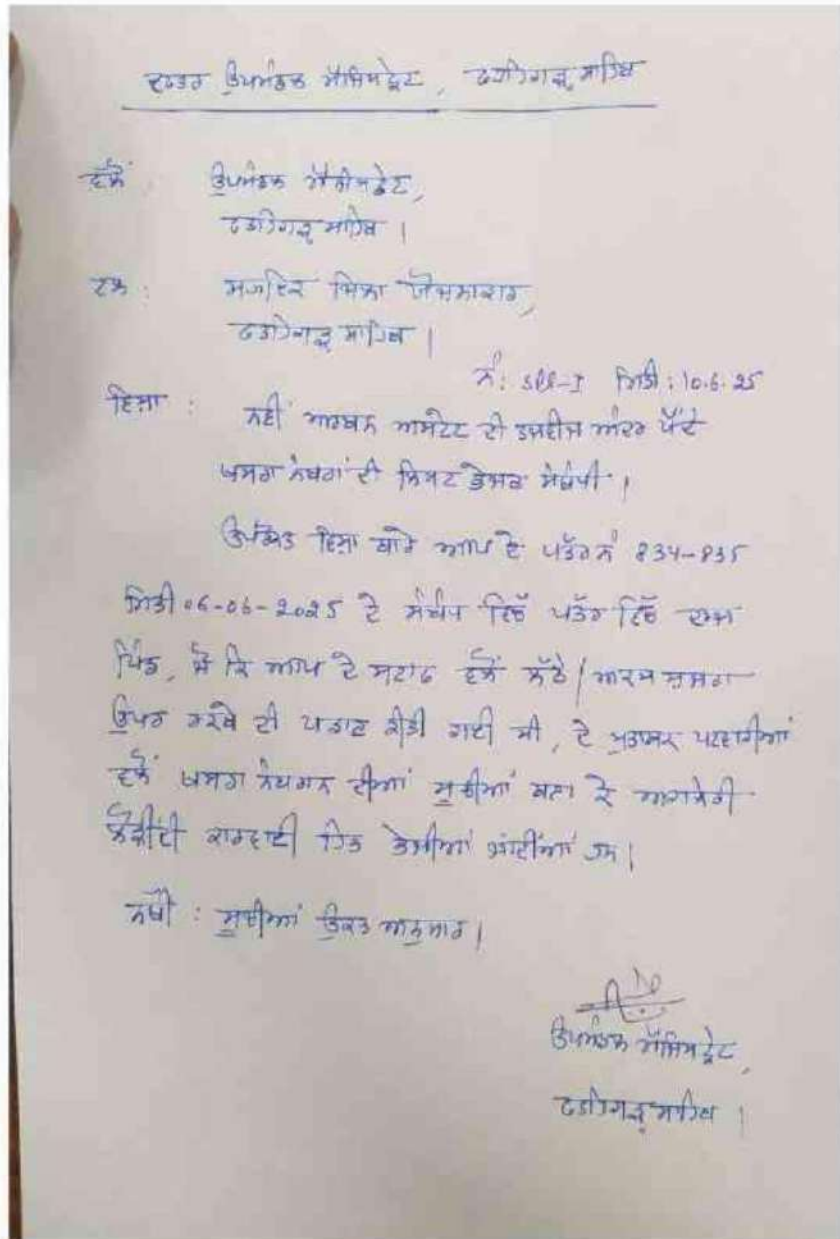 ਦਫਤਰ ਉਪਮੰਡਲ ਮੈਜਿਸਟ੍ਰੇਟ, ਫਤਹਿਗੜ੍ਹ ਸਾਹਿਬ
ਵੱਲੋਂ ਉਪਮੰਡਲ ਮੈਜਿਸਟ੍ਰੇਟ,
ਫਤਹਿਗੜ੍ਹ ਸਾਹਿਬ ।
ਵੱਲ : ਜ਼ਿਲਾ ਯੋਜਨਾਕਾਰ,
ਫਤਹਿਗੜ੍ਹ ਸਾਹਿਬ ।
ਨੰ: ਮਿਤੀ : 10.6.25
ਵਿਸ਼ਾ : ਨਵੀਂ ਅਰਬਨ ਅਸਟੇਟ ਦੀ ਤਜਵੀਜ ਅੰਦਰ ਪੈਂਦੇ
ਖਸਰਾ ਨੰਬਰਾਂ ਦੀ ਲਿਸਟ ਭੇਜਣ ਸੰਬੰਧੀ ।
ਉਪਰੋਕਤ ਵਿਸ਼ਾ ਬਾਰੇ ਆਪ ਦੇ ਪੱਤਰ ਨੰ 834-835
ਮਿਤੀ 06-06-2025 ਦੇ ਸੰਬੰਧ ਵਿੱਚ ਪੱਤਰ ਵਿੱਚ ਦਰਜ
ਪਿੰਡ, ਜੋ ਕਿ ਆਪ ਦੇ ਸਟਾਫ ਵੱਲੋਂ ਨੱਠੇ /
ਉਪਰ ਰਕਬੇ ਦੀ ਕੀਤੀ ਗਈ ਸੀ, ਦੇ ਮੁਤਾਬਕ ਪਟਵਾਰੀਆਂ
ਵੱਲੋਂ ਖਸਰਾ ਨੰਬਰਾਨ ਦੀਆਂ ਸੂਚੀਆਂ ਬਣਾ ਕੇ ਅਗਲੇਰੀ
ਲੋੜੀਂਦੀ ਕਾਰਵਾਈ ਹਿਤ ਭੇਜੀਆਂ ਜਾਂਦੀਆਂ ਹਨ ।
ਨੱਥੀ : ਸੂਚੀਆਂ ਉਕਤ ਅਨੁਸਾਰ ।
ਉਪਮੰਡਲ ਮੈਜਿਸਟ੍ਰੇਟ,
ਫਤਹਿਗੜ੍ਹ ਸਾਹਿਬ ।